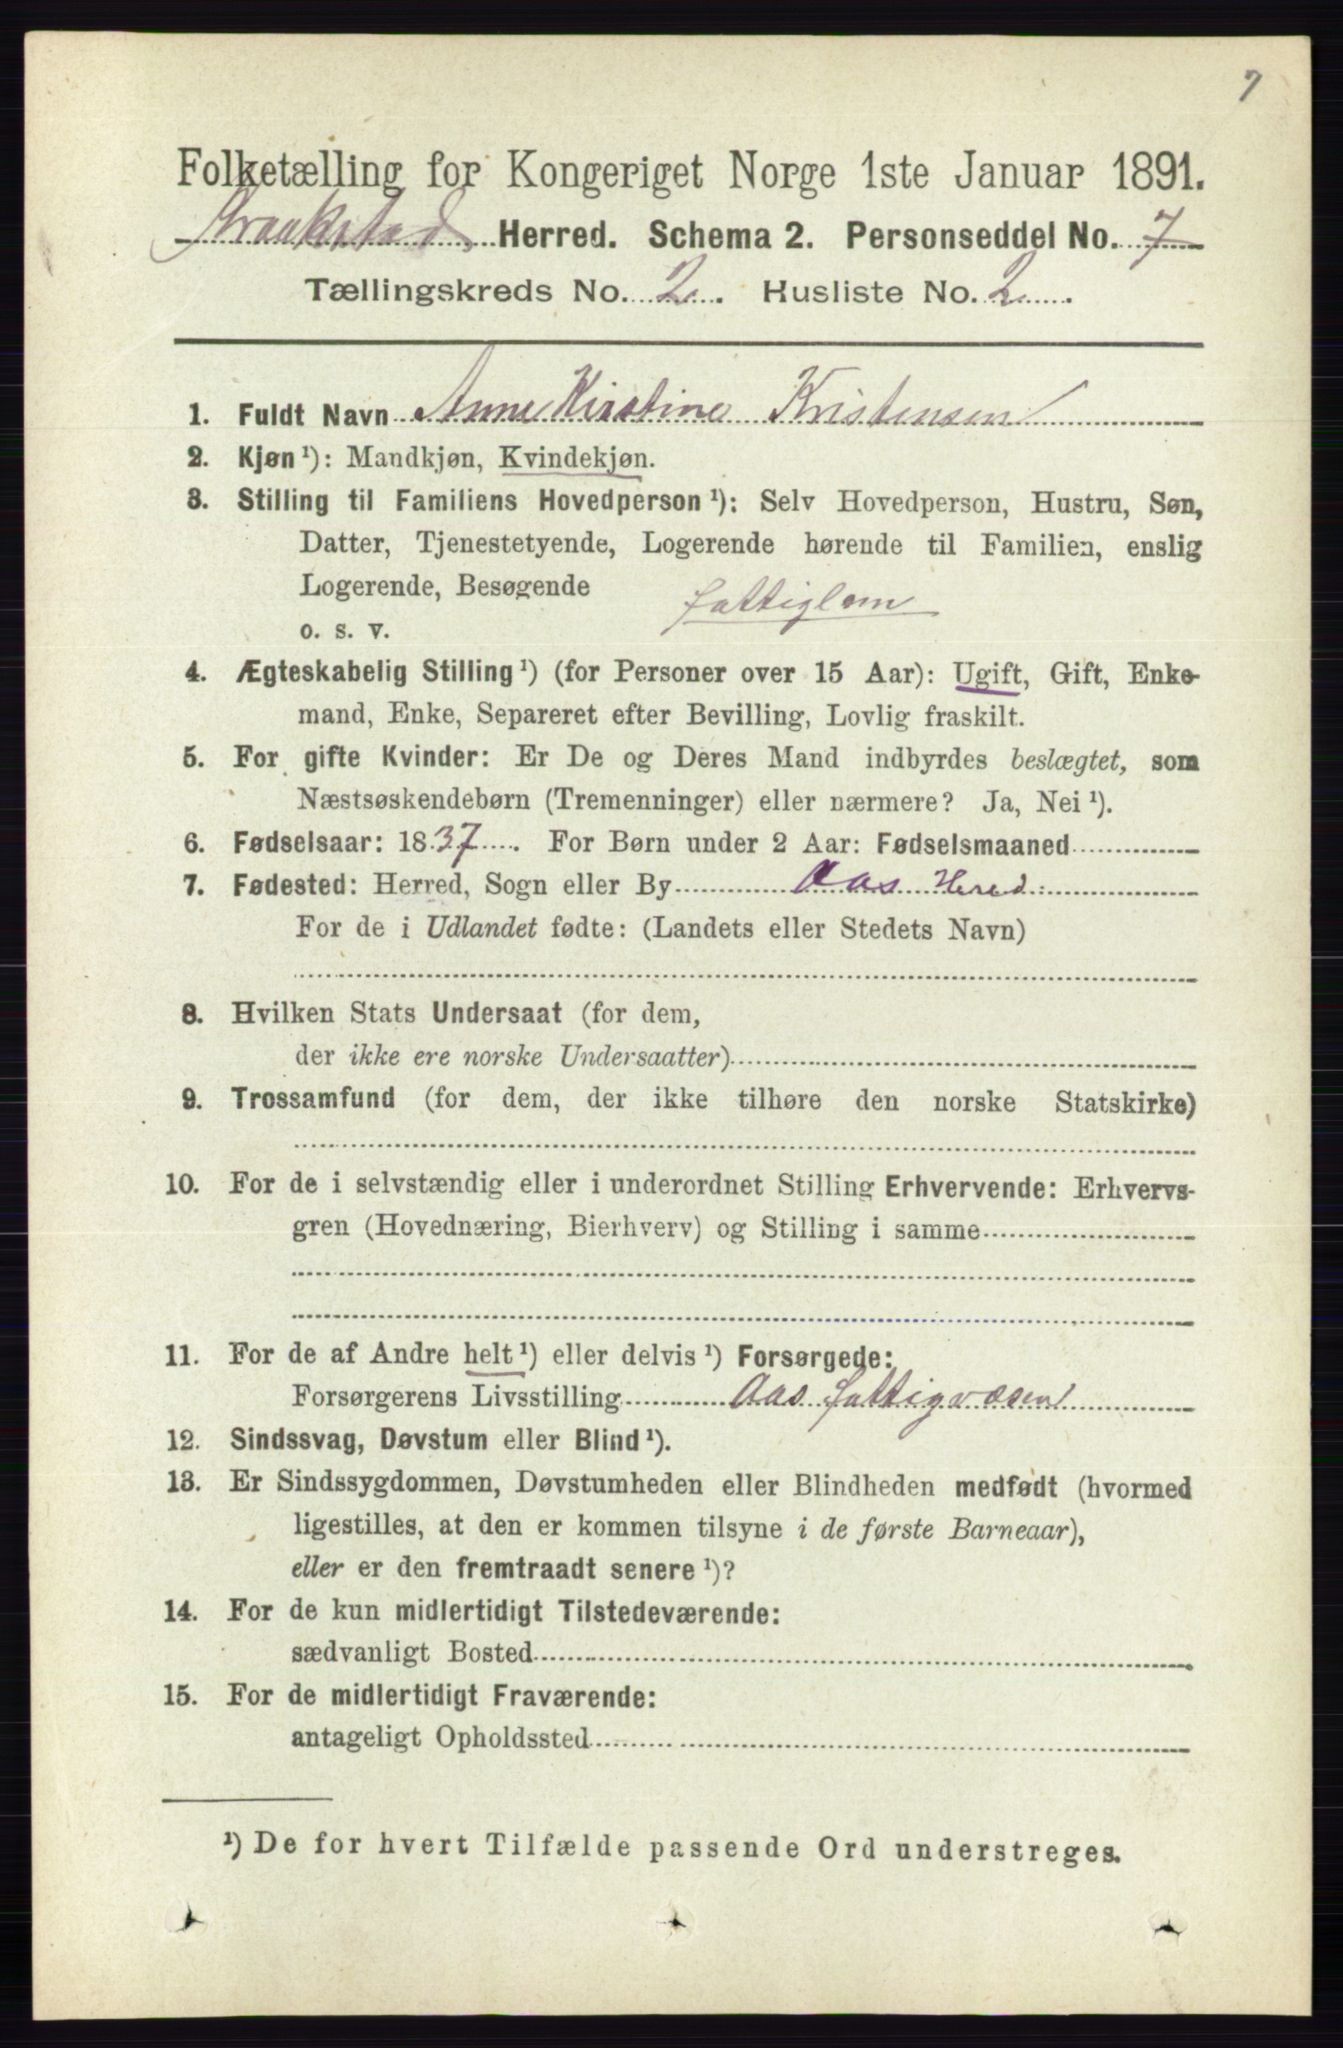 7
Folketælling for Kongeriget Norge 1ste Januar 1891.
Kraakstad Herred. Schema 2. Personseddel No. 7
Tællingskreds No. 2. Husliste No. 2
1. Fuldt Navn Anne Kirstine Kristensen
2. Kjøn ¹): Mandkjøn, Kvindekjøn.
3. Stilling til Familiens Hovedperson ¹): Selv Hovedperson, Hustru, Søn,
Datter, Tjenestetyende, Logerende hørende til Familien, enslig
Logerende, Besøgende fattiglem
o. s. v.
4. Ægteskabelig Stilling ¹) (for Personer over 15 Aar): Ugift, Gift, Enke-
mand, Enke, Separeret efter Bevilling, Lovlig fraskilt.
5. For gifte Kvinder: Er De og Deres Mand indbyrdes beslægtet, som
Næstsøskendebørn (Tremenninger) eller nærmere? Ja, Nei ¹).
6. Fødselsaar: 1837. For Børn under 2 Aar: Fødselsmaaned
7. Fødested: Herred, Sogn eller By Aas Hered
For de i Udlandet fødte: (Landets eller Stedets Navn)
8. Hvilken Stats Undersaat (for dem,
der ikke ere norske Undersaatter)
9. Trossamfund (for dem, der ikke tilhøre den norske Statskirke)
10. For de i selvstændig eller i underordnet Stilling Erhvervende: Erhvervs-
gren (Hovednæring, Bierhverv) og Stilling i samme
11. For de af Andre helt ¹) eller delvis ¹) Forsørgede:
Forsørgerens Livsstilling Aas fattigvæsen
12. Sindssvag, Døvstum eller Blind ¹).
13. Er Sindssygdommen, Døvstumheden eller Blindheden medfødt (hvormed
ligestilles, at den er kommen tilsyne i de første Barneaar),
eller er den fremtraadt senere ¹)?
14. For de kun midlertidigt Tilstedeværende:
sædvanligt Bosted
15. For de midlertidigt Fraværende:
antageligt Opholdssted
¹) De for hvert Tilfælde passende Ord understreges.